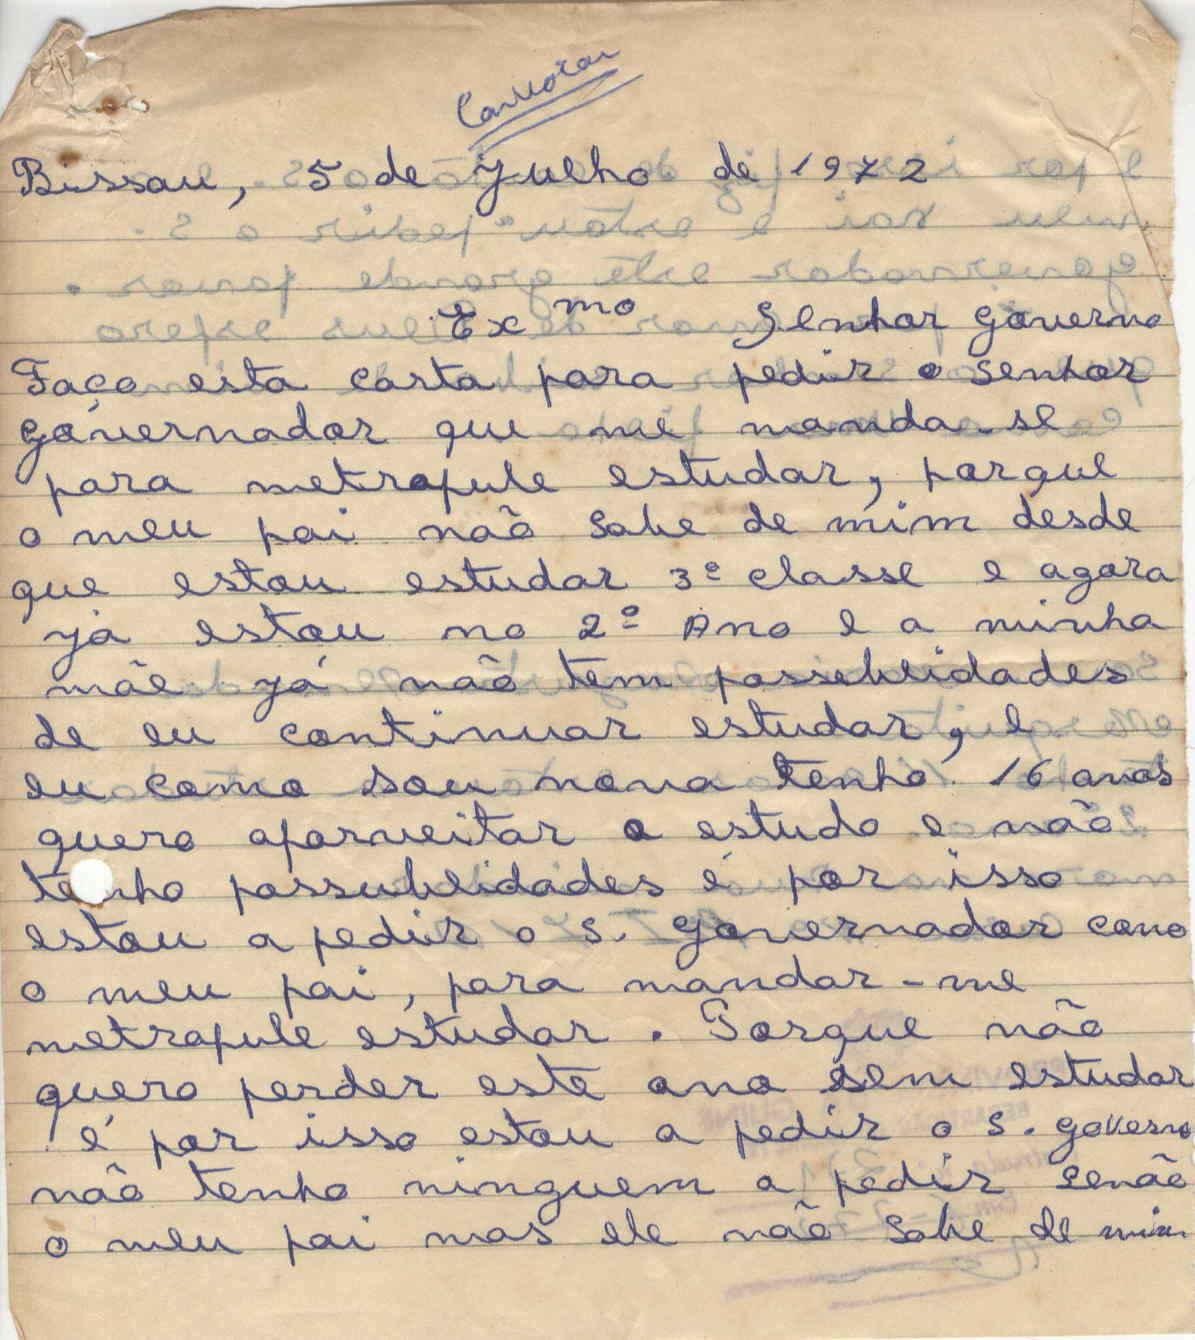 Bissau, 5 de Julho de 1972
Ex mo Senhor Governo
Faço esta carta para pedir o senhor
Governador que me manda-se
para metrapule estudar, porque
o meu pai não sabe de mim desde
que estou estudar 3º classe e agora
já estou no 2º Ano e a minha
mãe já não tem possiblidades
de eu continuar estudar, e
eu como sou nova tenho 16 anos
quero aforveitar o estudo e não
tenho possiblidades é por isso
estou a pedir o S. Governador como
o meu pai, para mandar-me
metrapule estudar. Porque não
quero perder este ano sem estudar
é por isso estou a pedir o S. governo
não tenho ninguem a pedir senão
o meu pai mas ele não sabe de mim